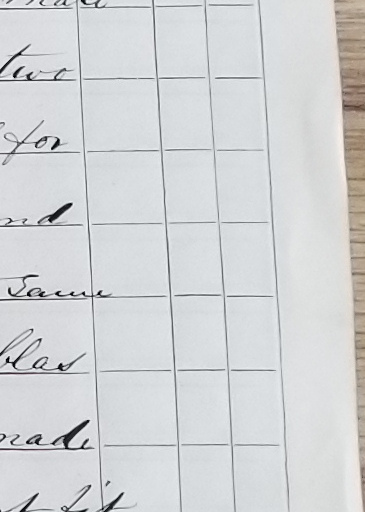 two
for
nd
same
blas
made